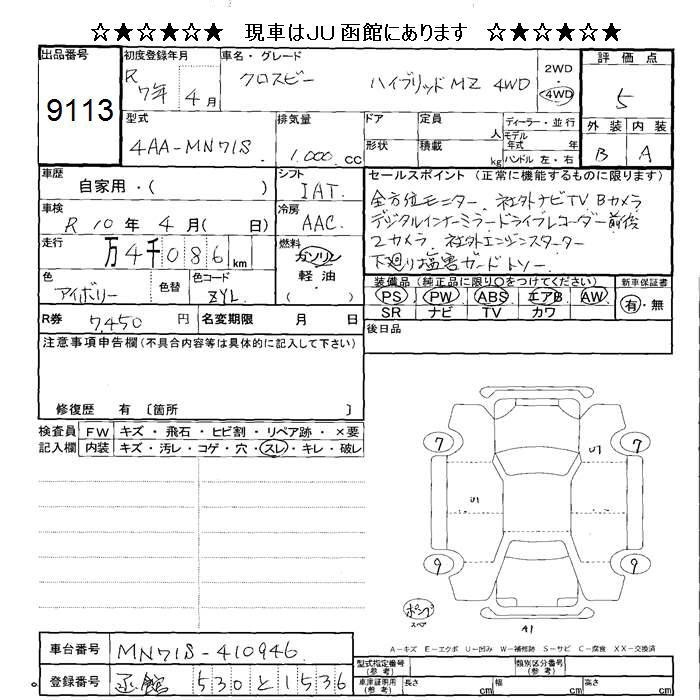 ☆★☆★☆★ 現車はJU函館にあります ☆★☆★☆★
出品番号 9113
初度登録年月 R 7年 4月
車名・グレード クロスビー ハイブリッドMZ 4WD
2WD・4WD
評価点 5
外装 内装
B A
型式 4AA-MN71S
排気量 1,000 cc
ドア 定員 人
形状 積載 kg
ディーラー・並行
モデル年式 年
ハンドル 左・右
車歴 自家用・( )
シフト IAT
車検 R 10年 4月( 日)
冷房 AAC
走行 万4千086km
燃料 ガソリン 軽油 ( )
色 アイボリー 色替 色コード ZYL
セールスポイント (正常に機能するものに限ります)
全方位モニター、社外ナビTV、Bカメラ
デジタルインナーミラードライブレコーダー前後
2カメラ、社外エンジンスターター
下廻り塩害ガード
装備品(純正品に限り○をつけてください)
PS PW ABS エアB AW
SR ナビ TV カワ
新車保証書
有・無
R券 7,450 円 名変期限 月 日
後日品
注意事項申告欄(不具合内容等は具体的に記入して下さい)
修復歴 有 〔箇所 〕
検査員記入欄
FW キズ・飛石・ヒビ割・リペア跡・×要
内装 キズ・汚レ・コゲ・穴・スレ・キレ・破レ
7 7
U1 U1
9 9
ポンプ
スペア
A1
A-キズ E-エクボ U-凹み W-補修跡 S-サビ C-腐食 XX-交換済
車台番号 MN71S-410946
登録番号 函館 530と1536
型式指定番号(参考) 類別区分番号(参考)
車庫証明用(参考) 長さ cm 幅 cm 高さ cm